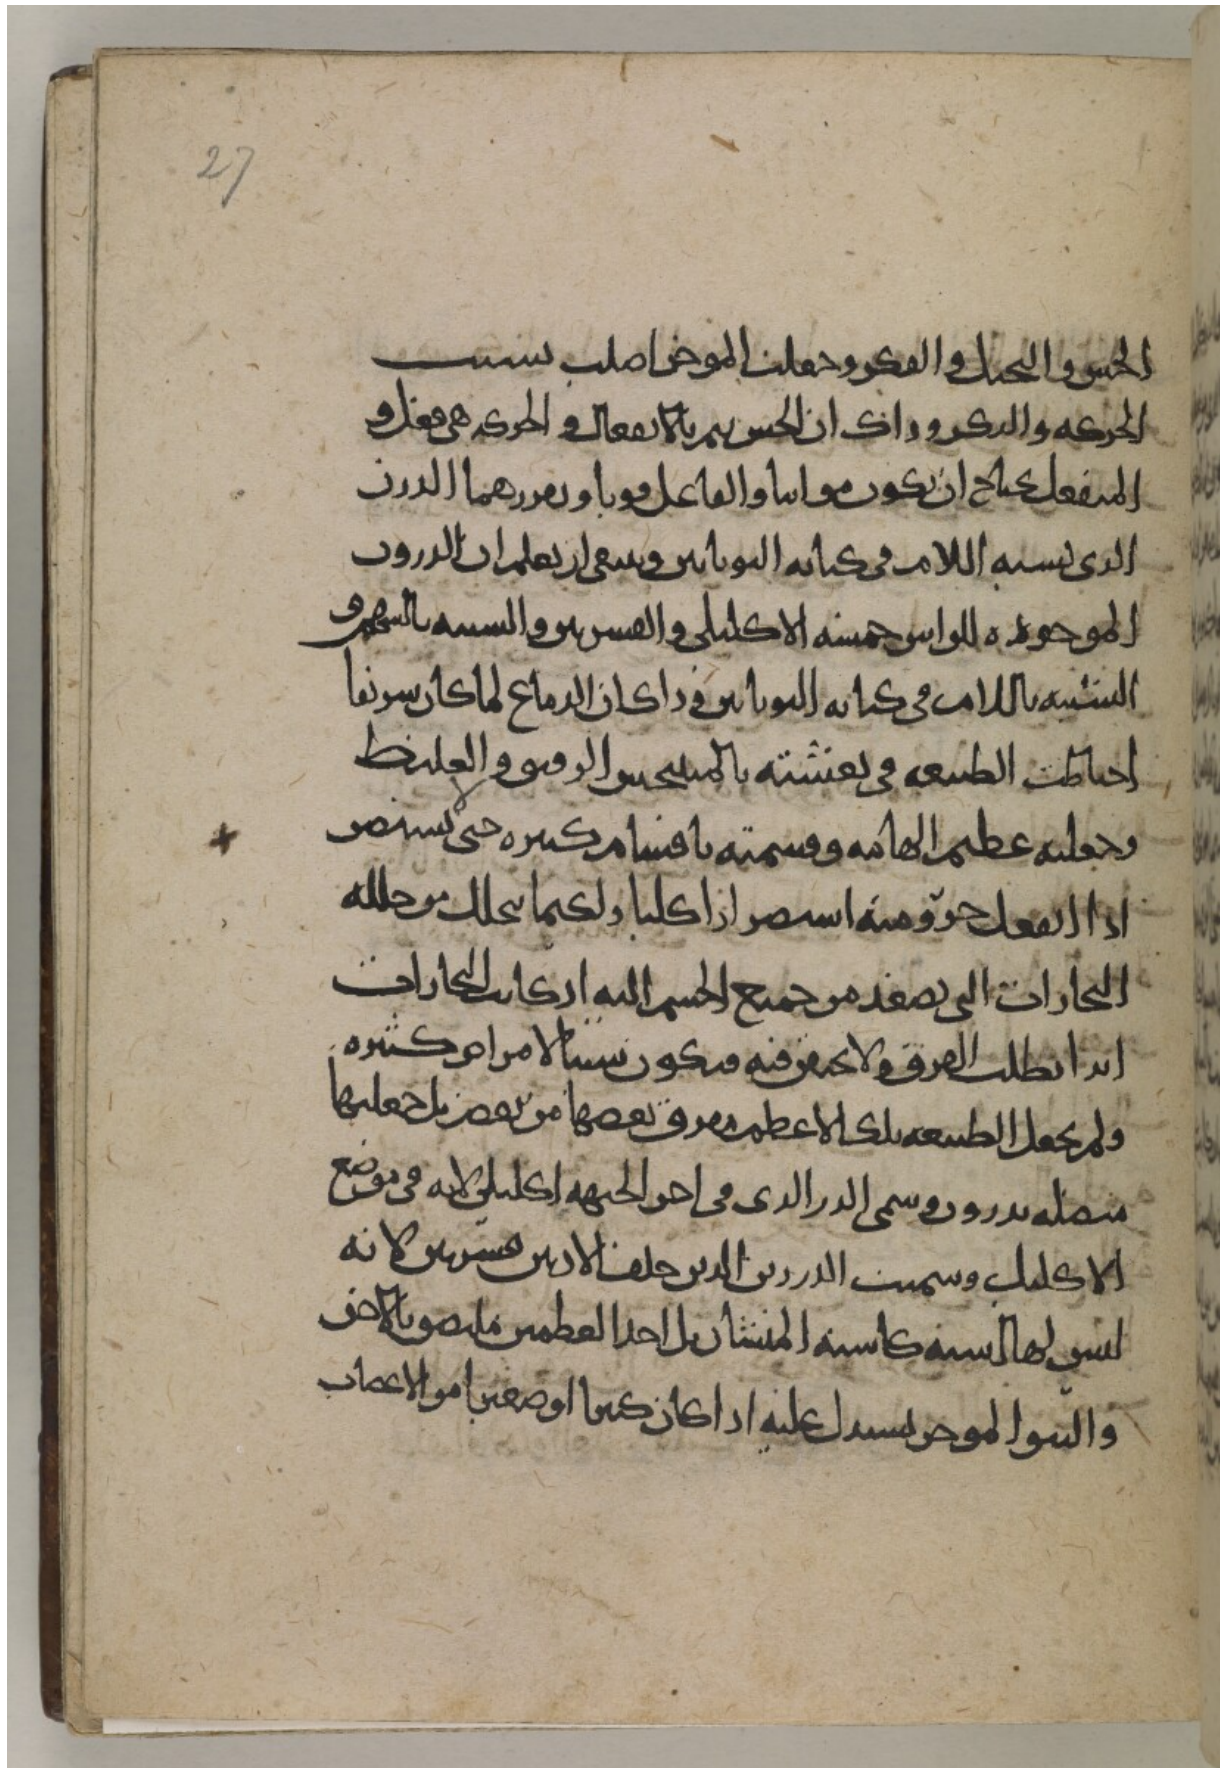 27
الحس والتخيل والفكر وجعلت الموخر اصلب بسبب
الحركه والذكر وذاك ان الحس يتم بالانفعال والحركه هي فعل و
المنفعل يحتاج ان يكون مواتيا والفاعل قويا ويفرزهما الدرز
الذي يشبه اللام في كتابه اليونانين وينبغي ان يعلم ان الدروز
الموجوده للراس خمسه الاكليلي والقشريين والشبيه بالسهم و
الشبيه باللام في كتابه اليونانين وذاك ان الدماغ لما كان شريفا
احتاطت الطبيعه في تغشيته بالمسحين الرقيق والغليظ
وجعلته عظيم الهامه وقسمته باقسام كثيره حتى يستضر
اذا انفعل جزو منه استضرارا كليا ولكيما يتحلل من خلله
البخارات التي تصعد من جميع الجسم اليه اذ كانت البخارات
ابدا تطلب الفرق ولا تحتقن فيه فيكون سببا لامراض كثيره
ولم تجعل الطبيعه تلك الاعظم مفرق بعضها من بعض بل جعلتها
متصله بدروز وسمي الدرز الذي في اخر الجبهه اكليلي لانه في موضع
الاكليل وسميت الدرزين الذين خلف الاذنين قشريين لانه
ليس لها اسنه كاسنه المنشار بل احد العظمين ملتصق بالاخر
والنتو الموخر يستدل عليه اذا كان كبيرا او صغيرا من الاعصاب